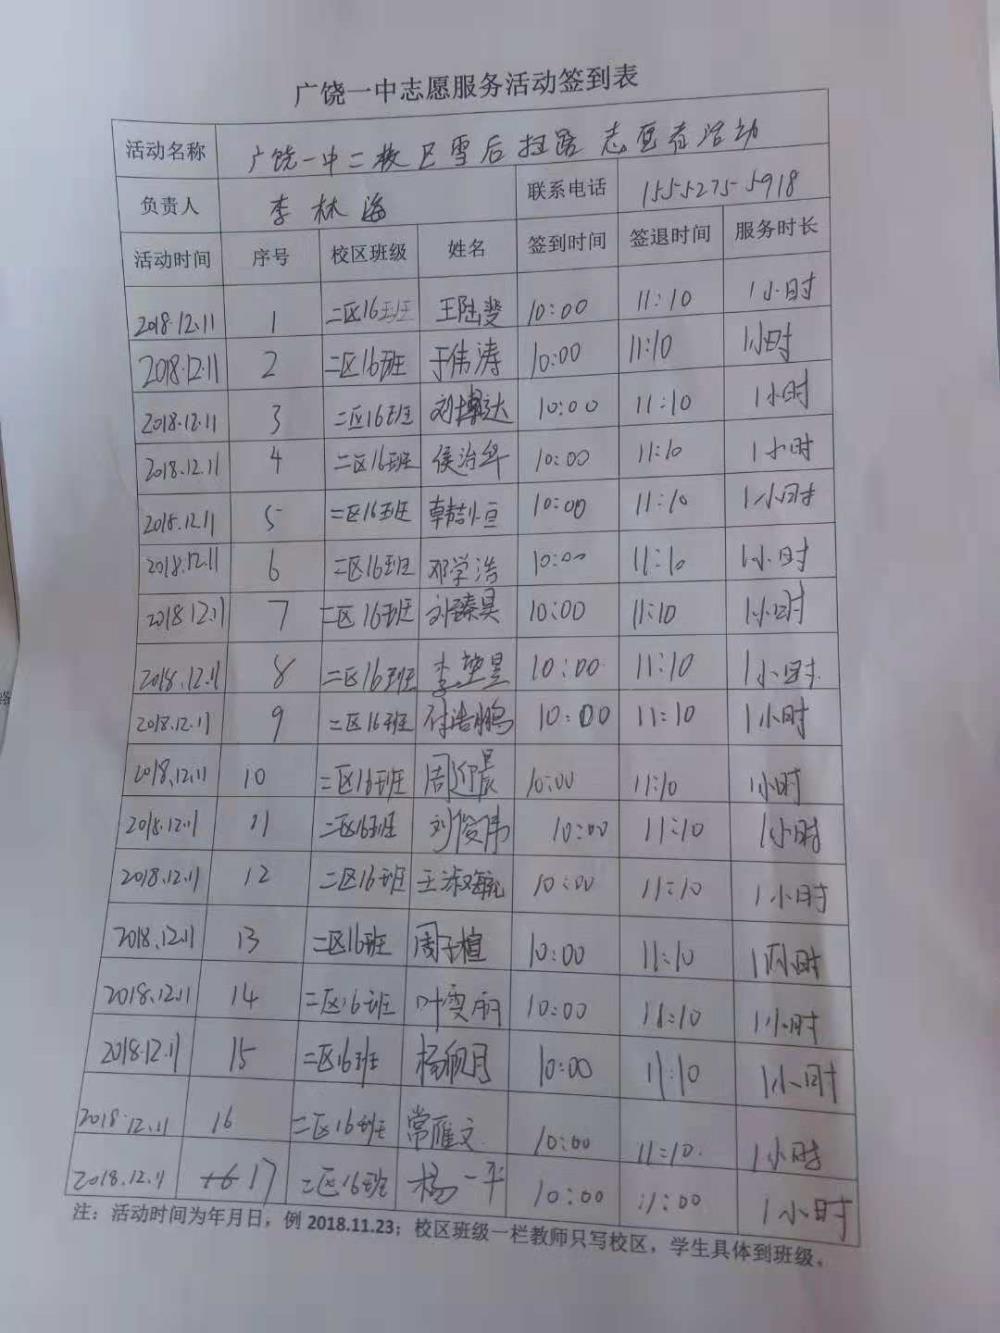 广饶一中志愿服务活动签到表
活动名称 广饶一中二校区雪后扫路志愿者活动
负责人 李林海 联系电话 15552755918
活动时间 序号 校区班级 姓名 签到时间 签退时间 服务时长
2018.12.11 1 二区16班 王陆斐 10:00 11:10 1小时
2018.12.11 2 二区16班 于伟涛 10:00 11:10 1小时
2018.12.11 3 二区16班 刘博达 10:00 11:10 1小时
2018.12.11 4 二区16班 侯治华 10:00 11:10 1小时
2018.12.11 5 二区16班 韩喆恒 10:00 11:10 1小时
2018.12.11 6 二区16班 邓学浩 10:00 11:10 1小时
2018.12.11 7 二区16班 刘臻昊 10:00 11:10 1小时
2018.12.11 8 二区16班 李 10:00 11:10 1小时
2018.12.11 9 二区16班 付浩鹏 10:00 11:10 1小时
2018.12.11 10 二区16班 周迎晨 10:00 11:10 1小时
2018.12.11 11 二区16班 刘俊伟 10:00 11:10 1小时
2018.12.11 12 二区16班 王淑毓 10:00 11:10 1小时
2018.12.11 13 二区16班 周子楦 10:00 11:10 1小时
2018.12.11 14 二区16班 叶雯丽 10:00 11:10 1小时
2018.12.11 15 二区16班 杨佩月 10:00 11:10 1小时
2018.12.11 16 二区16班 常雁文 10:00 11:10 1小时
2018.12.11 17 二区16班 杨一平 10:00 11:00 1小时
注：活动时间为年月日，例 2018.11.23；校区班级一栏教师只写校区，学生具体到班级。